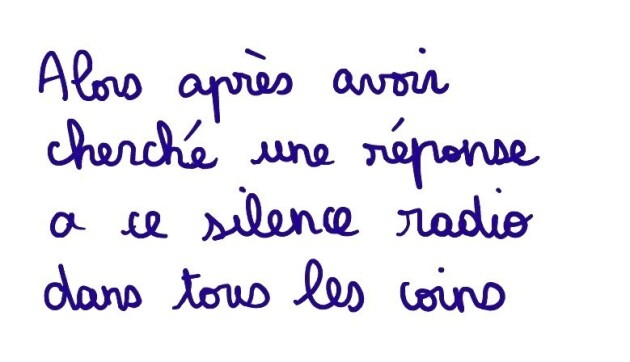 Alors après avoir
cherché une réponse
a ce silence radio
dans tous les coins